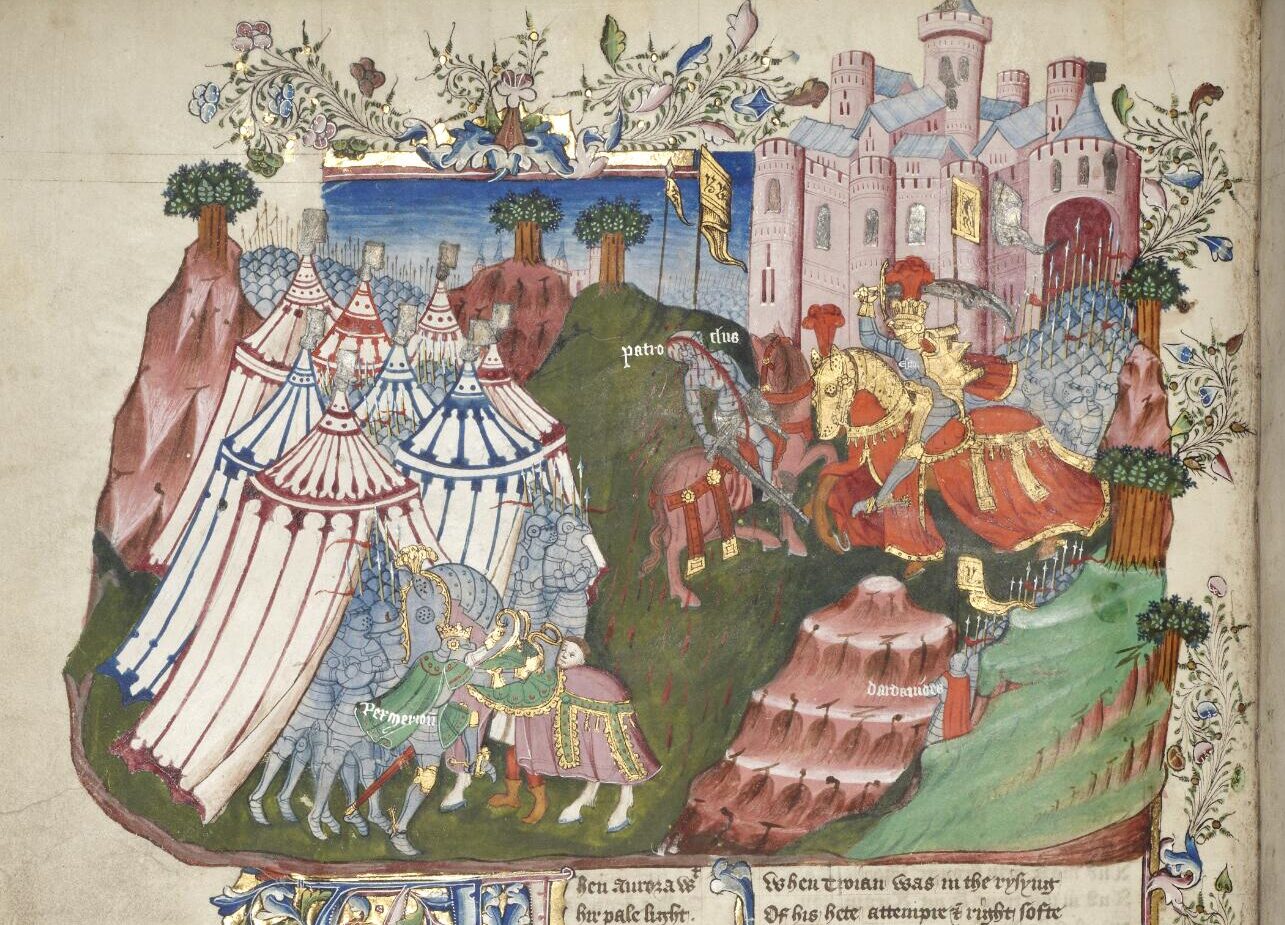 patro clus
Permerion
hen Aurora wt
hir pale light.
When twian was in the rysyng
Of his hete attempre & right softe